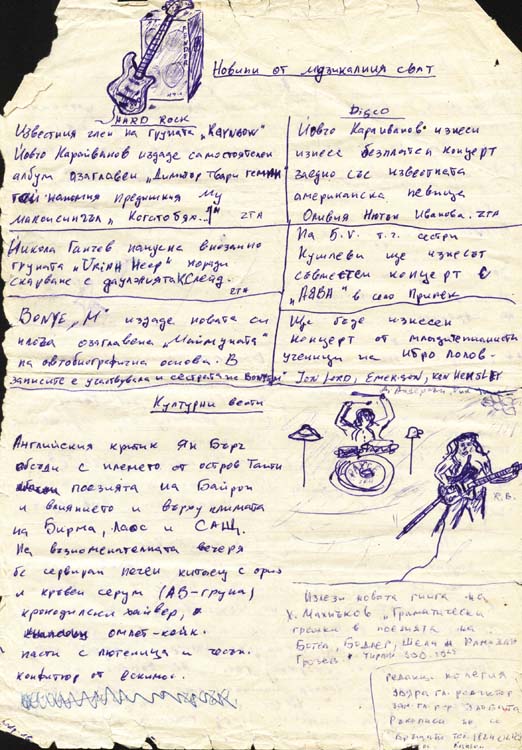 Новини от музикалния свят
HARD ROCK
Известния член на групата „RAYNBOW"
Йовчо Карайванов издаде самостоятелен
албум озаглавен „Димитър Твари
напомня Предишния му
максисингъл „Когатобях..!"
ЗТА
Никола Ганчев напусна внезапно
групата „URIAH HEEP" поради
скарване с
ЗТА
BONYE „M" издаде новата си
плоча озаглавена „Маймуната"
на автобиографична основа. В
записите е участвувала и сестрата на
DISCO
Йовчо Карайванов изнеси
изнесе безплатен концерт
заедно със известната
американска певица
Оливия Нютон Иванова. ЗТА
На 5.V. т.г. сестри
Кушлеви ще изнесът
съвместен концерт с
„АББА" в село
Ще бъде изнесен
концерт от
ученици на
JON LORD, EMERSON, KEN HENSLEY
Културни вести
Английския критик Ян Бъръ
обсъди с племето от остров Таити
поезията на Байрон
и влиянието и върху климата
на Бирма, Лаос и САЩ.
На възпоменателната вечеря
бе сервиран печен китаец с ориз
и кръвен серум (АВ-група)
крокодилски хайвер,
омлет-кейк.
пасти с лютеница и чесън.
конфитюр от ескимос.
R.B.
Излези новата книга на
Х. Махичков „Граматически
грешки в поезията на
Ботев, Бодлер, Шели и Рамадан
Грозев" Тираж
редакц. колегия
гл. редактор
зам гл. р-р
Ръкописи не се
връщат тел.